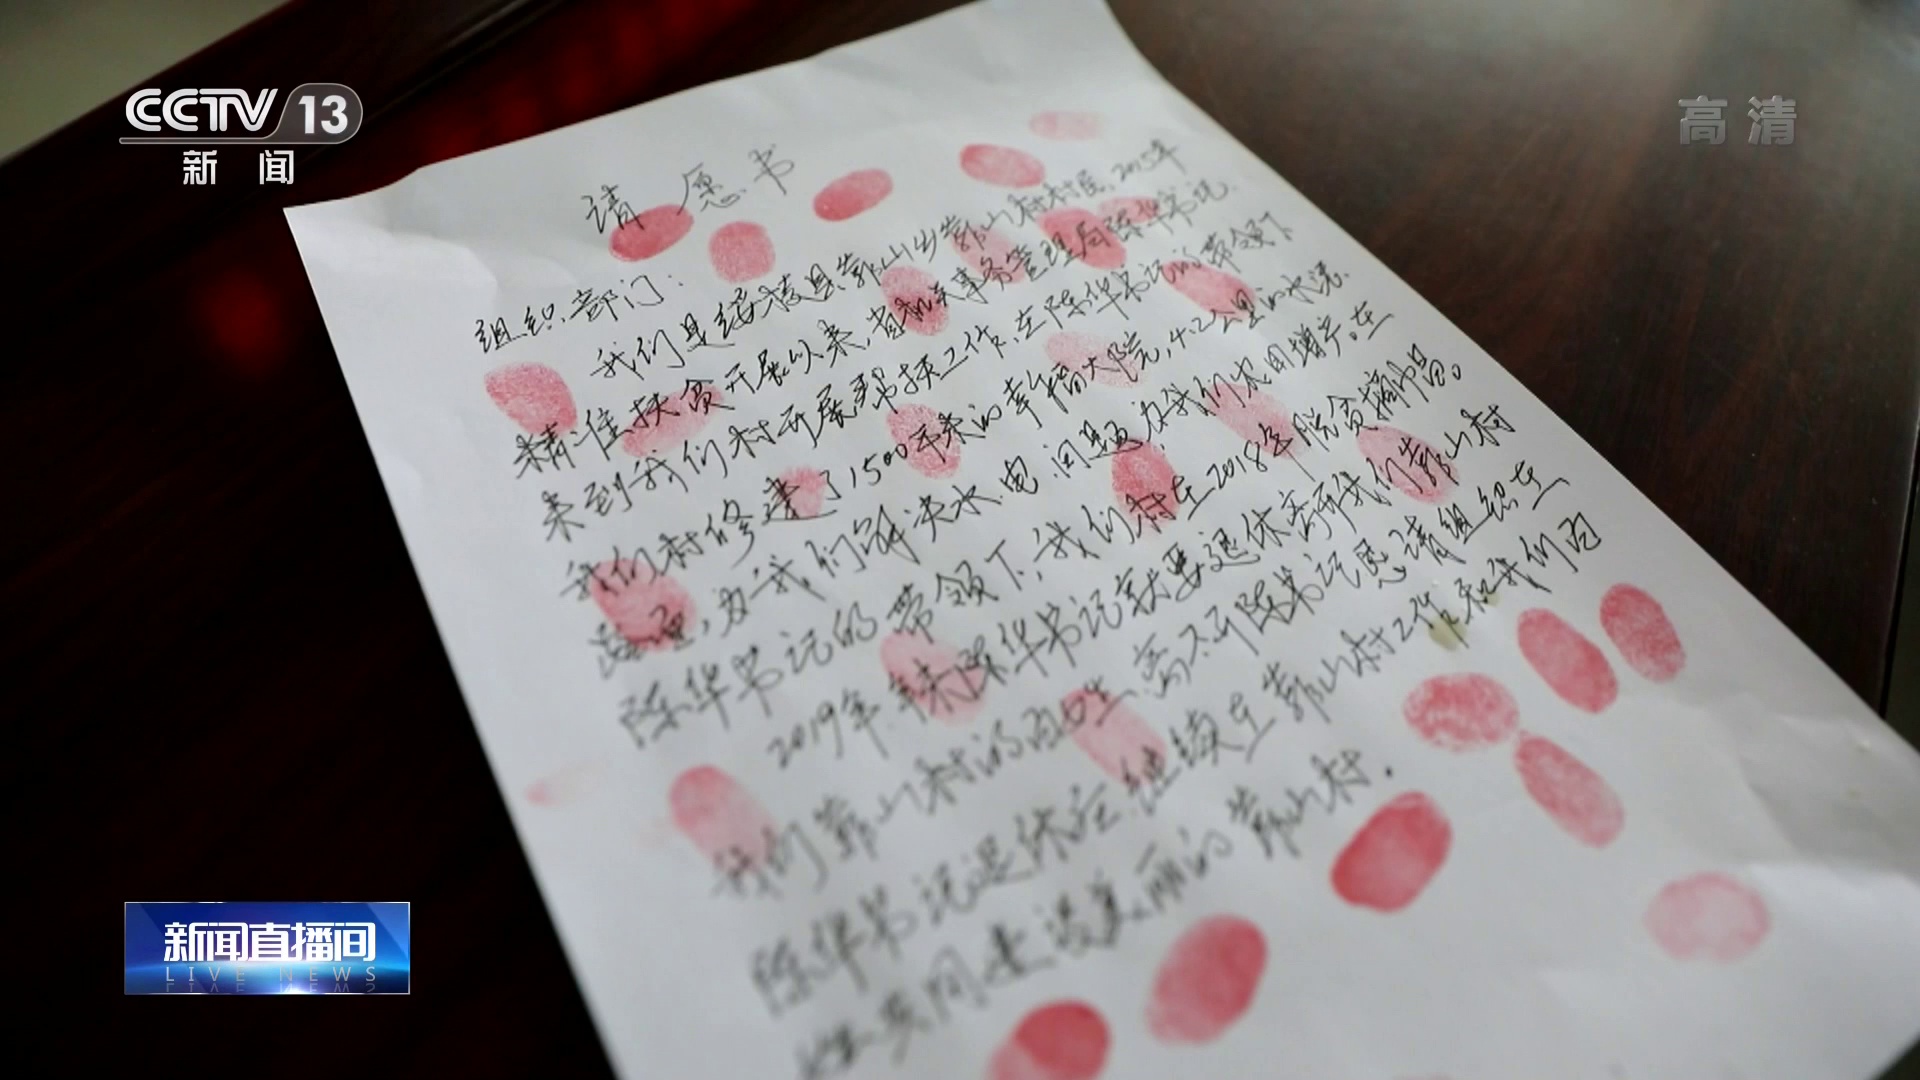 CCTV 13
新闻
高清
请愿书
组织部门：
我们是绥棱县靠山乡靠山村村民，2015年
精准扶贫开展以来，省机关事务管理局陈华书记
来到我们村开展帮扶工作，在陈华书记的带领下
我们村修建了1500平米的幸福大院，4.2公里的水泥
路面，为我们解决水、电问题，为我们农田增产。在
陈华书记的带领下，我们村在2018年脱贫摘帽。
2019年年末陈华书记就要退休离开我们靠山村
我们靠山村的百姓离不开陈书记恳请组织在
陈华书记退休后继续在靠山村工作和我们百
姓共同建设美丽的靠山村.
新闻直播间
LIVE NEWS